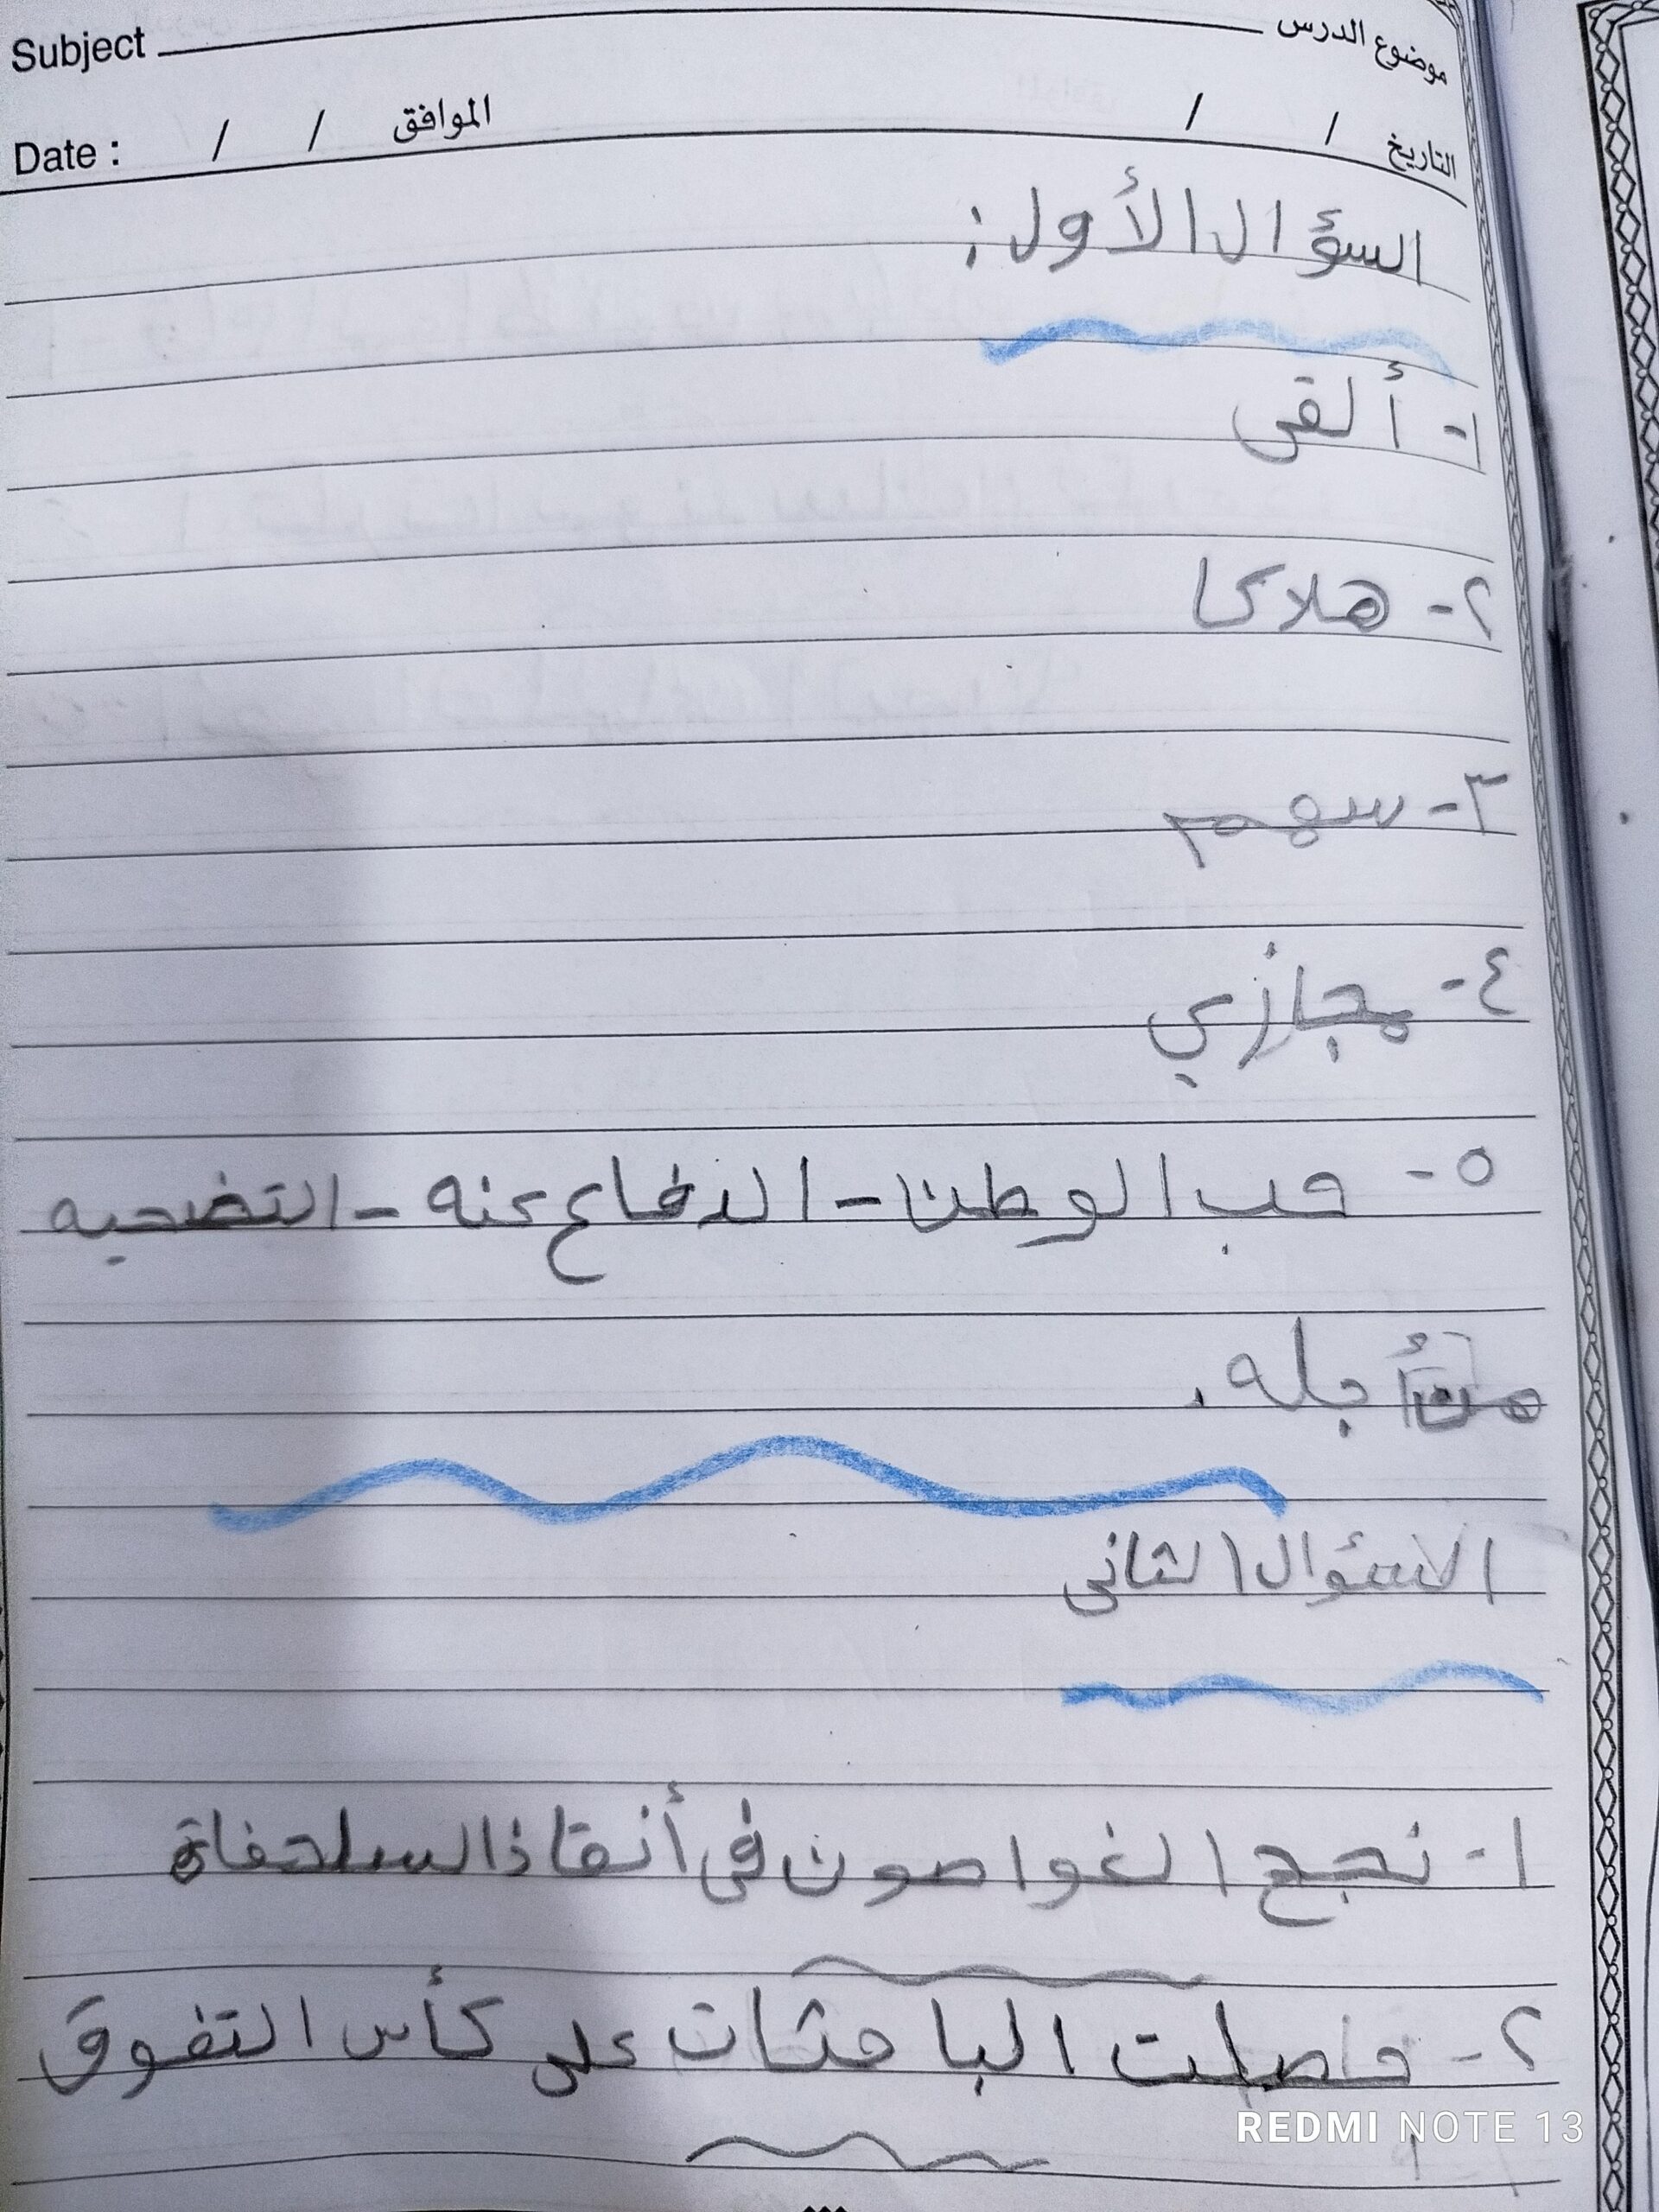 Subject موضوع الدرس
Date : / / الموافق / / التاريخ
السؤال الأول:
١- ألقى
٢- هلاكا
٣- سهم
٤- مجازي
٥- حب الوطن - الدفاع عنه - التضحيه
من أجله.
الاسؤال الثانى
١- نجح الغواصون فى أنقاذ السلحفاة
٢- حصلت الباحثات على كأس التفوق
REDMI NOTE 13